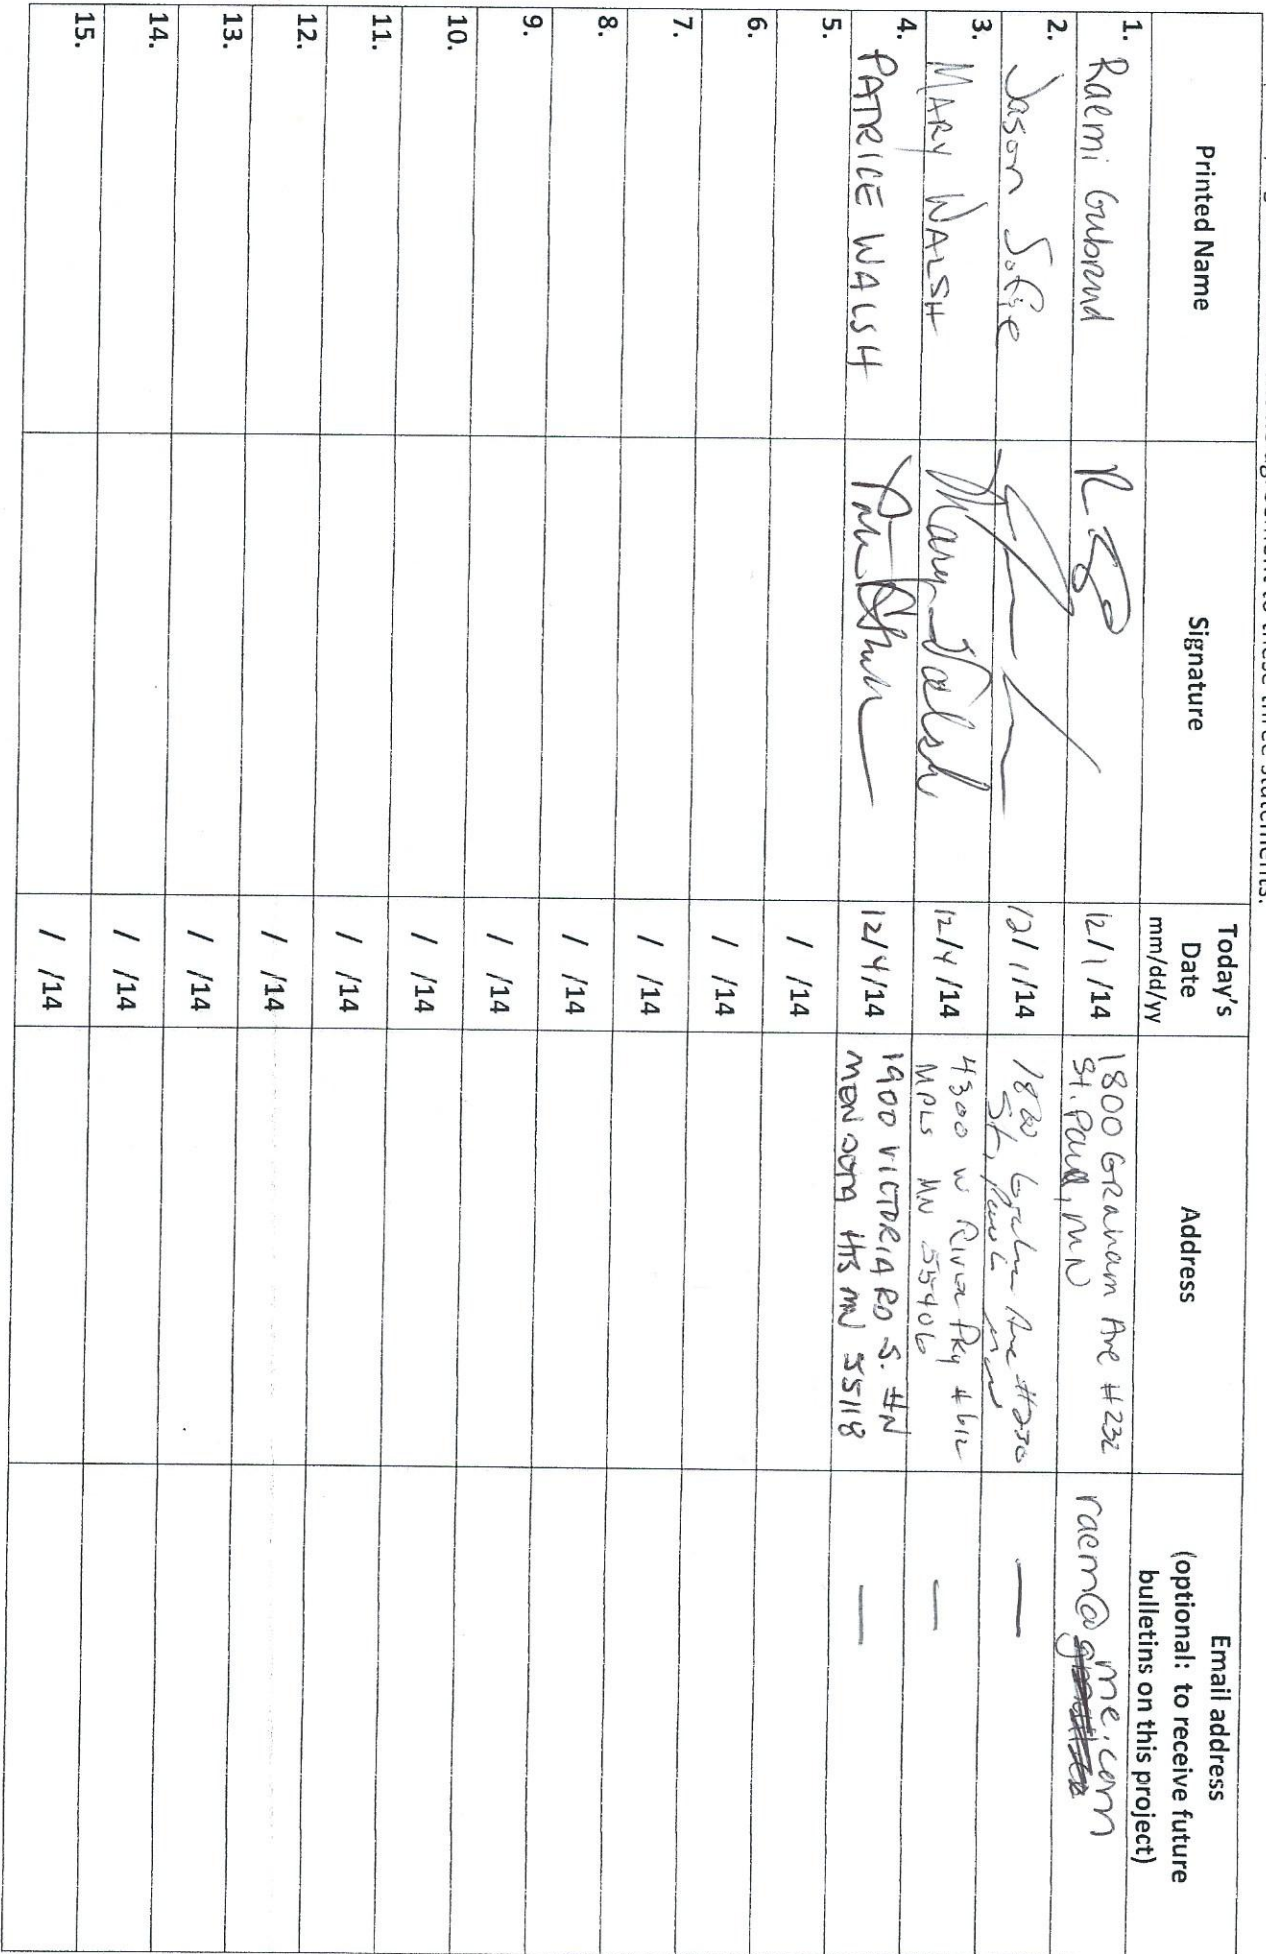 agreement to these three statements.
Printed Name
Signature
Today's
Date
mm/dd/yy
Address
Email address
(optional: to receive future
bulletins on this project)
1. Raemi Gubrud 12/1/14 1800 Graham Ave #232
St. Paul, MN
raem@me.com
2. Jason 12/1/14 Ave #230
St. Paul MN
—
3. MARY WALSH Mary Walsh 12/4/14 4300 W River Pky #612
MPLS MN 55406
—
4. PATRICE WALSH 12/4/14 1900 VICTORIA RD S. #N
MENDOTA HTS MN 55118
—
5. / /14
6. / /14
7. / /14
8. / /14
9. / /14
10. / /14
11. / /14
12. / /14
13. / /14
14. / /14
15. / /14